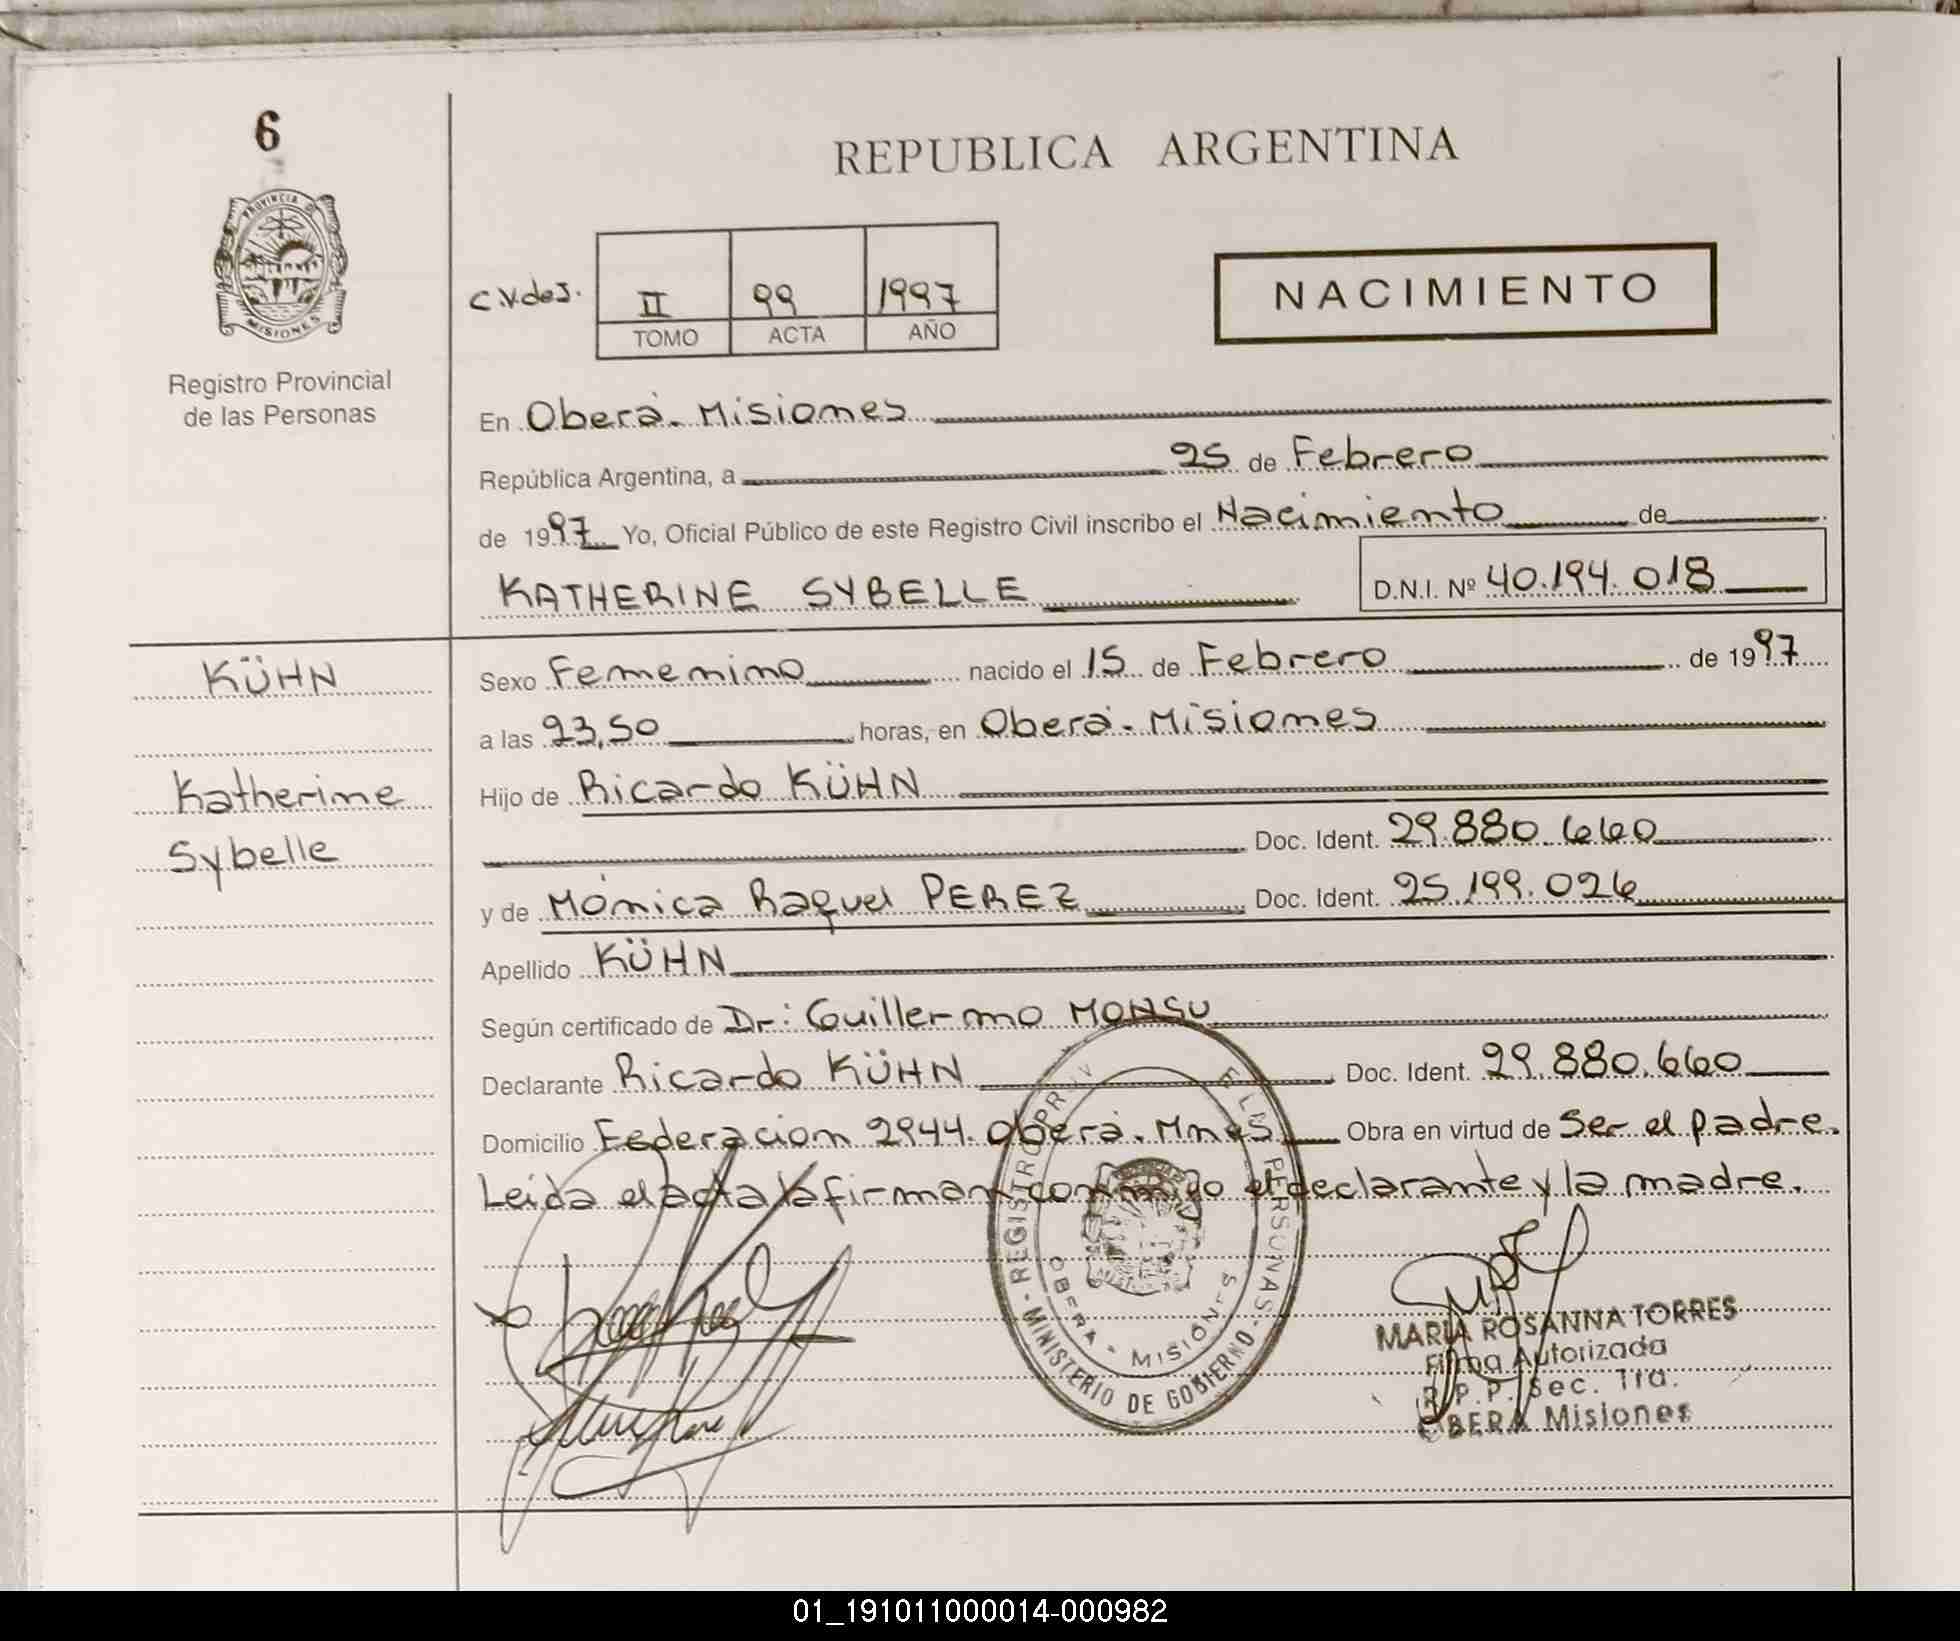 6
REPUBLICA ARGENTINA
PROVINCIA D
MISIONES
Registro Provincial
de las Personas
C.V.de J.
II 99 1997
TOMO ACTA AÑO
NACIMIENTO
En Oberá. Misiones
República Argentina, a 25 de Febrero
de 1997 Yo, Oficial Público de este Registro Civil inscribo el Nacimiento de
KATHERINE SYBELLE D.N.I. Nº 40.194.018
KÜHN
Katherine
Sybelle
Sexo Femenino nacido el 15 de Febrero de 1997
a las 23,50 horas, en Oberá. Misiones
Hijo de Ricardo KÜHN
Doc. Ident. 29.880.660
y de Mónica Raquel PEREZ Doc. Ident. 25.199.026
Apellido KÜHN
Según certificado de Dr: Guillermo MONSU
Declarante Ricardo KÜHN Doc. Ident. 29.880.660
Domicilio Federacion 2944. Oberá. Mnes Obra en virtud de Ser el padre.
Leida el acta la firman conmigo el declarante y la madre.
REGISTRO PROV E LAS PERSONAS - MINISTERIO DE GOBIERNO -
OBERA - MISIONES
MARIA ROSANNA TORRES
Firma Autorizada
R.P.P. Sec. 1ra.
OBERA Misiones
01_191011000014-000982